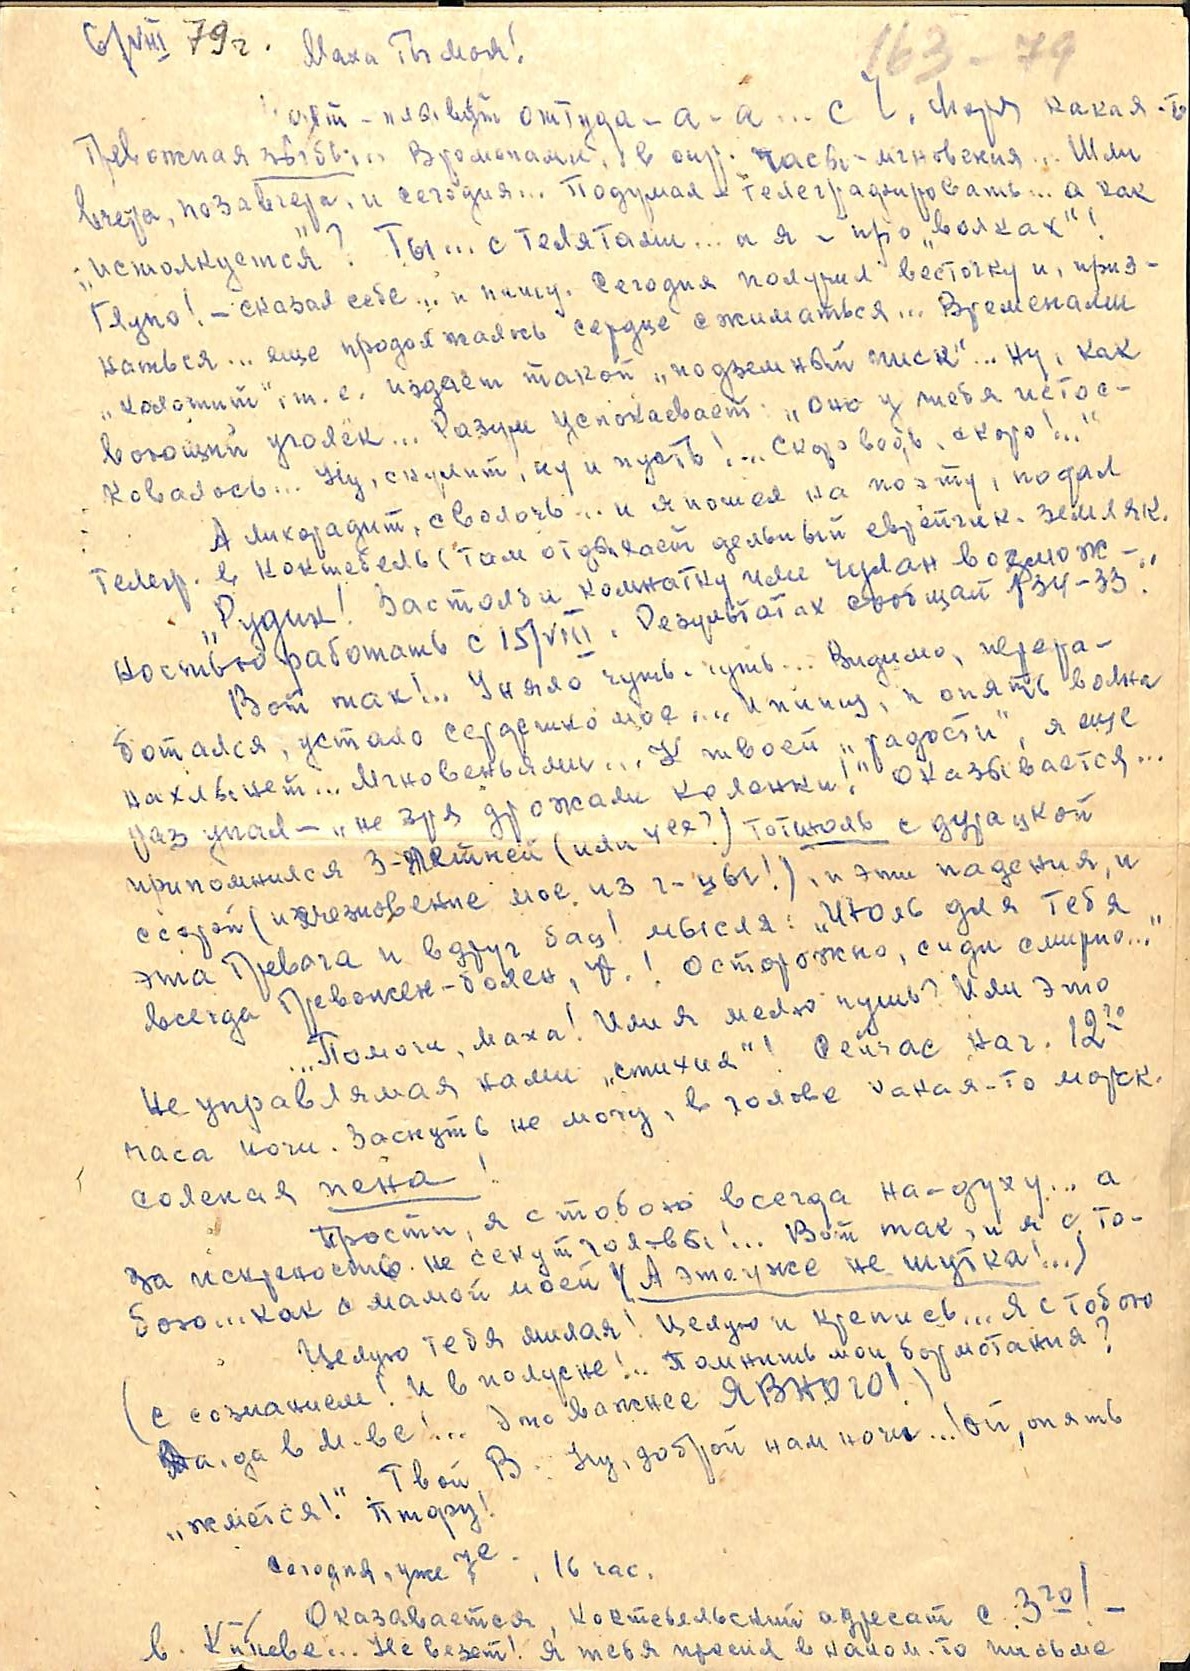 6/VIII 79 г. Маха Ты моя!
163-79
плывут оттуда-а-а... с Ч. моря какая-то
Тревожная зыбь... Временами, в опр. часы-мгновения... Шли
вчера, позавчера, и сегодня... Подумал - Телеграфировать... а как
„истолкуется"? Ты... с Телятами... а я - про „волках"!
Глупо! - сказал себе... и пишу. Сегодня получил весточку и, приз-
наться... еще продолжалось сердце сжиматься... Временами
„колотит", т. е. издает такой „подземный писк"... ну, как
воющий уголек... Разум успокаивает: „оно у тебя истос-
ковалось... Ну, скулит, ну и пусть!... Скоро ведь, скоро!..."
А лихорадит, сволочь... и я пошел на почту, подал
Телегр. в Коктебель (там отдыхает дельный еврейчик-земляк.
„Рудин! Застолби комнатку или чулан возмож-
ностью работать с 15/VIII. Результатах сообщай 134-33."
Вот так!.. Уняло чуть-чуть... Видимо, перера-
ботался, устало сердешко мое... И пишу, и опять волна
нахлынет... Мгновеньями... К твоей „радости", я еще
раз упал - „не зря дрожали коленки!" Оказывается...
припомнился 3-летней (или чея?) тот июль с дурацкой
ссорой (исчезновение мое из г-цы!), и эти падения, и
эта Тревога и вдруг бац! мысля: „Июль для тебя
всегда Тревожен-болен, В.! Осторожно, сиди смирно..."
...Помоги, Маха! Или я мелю чушь? Или это
не управлямая нами „стихия"! Сейчас нач. 12
часа ночи. Заснуть не могу, в голове какая-то морск.
соленая пена!
Прости, я с тобою всегда на-духу... а
за искренность не секут головы!... Вот так, и я с то-
бою... как с мамой моей (А это уже не шутка!...)
Целую тебя милая! Целую и крепись... Я с тобою
(с сознанием! И в полусне!.. Помнишь мои бормотания?
Да, да в М-ве!... Это важнее ЯВНОГО!)
Твой В. Ну, доброй нам ночи...! Ой, опять
„жмется!" Птару!
Сегодня, уже 7е., 16 час.
Оказавается, коктебельский адресат с 3го! -
в Киеве... Не везет! Я тебя просил в каком-то письме